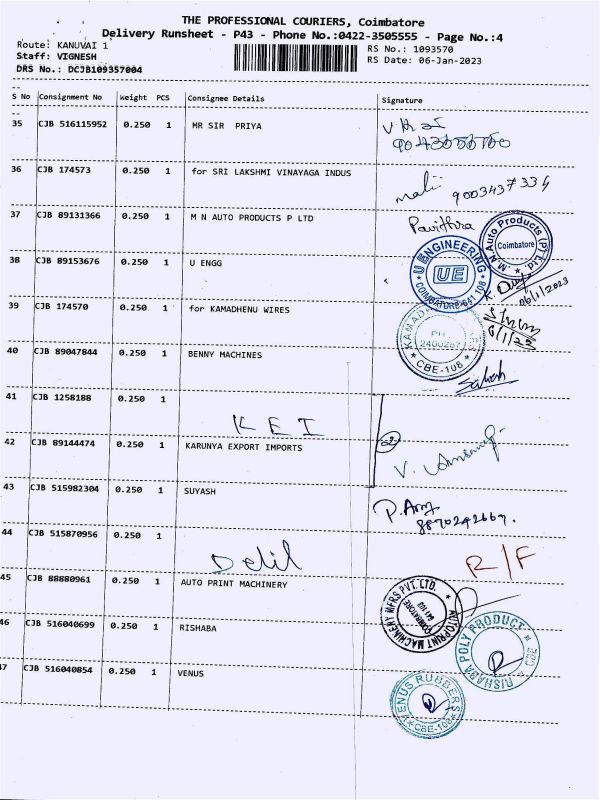 THE PROFESSIONAL COURIERS, Coimbatore
Delivery Runsheet - P43 - Phone No.:0422-3505555 - Page No.:4
Route: KANUVAI 1
RS No.: 1093570
Staff: VIGNESH
RS Date: 06-Jan-2023
DRS No.: DCJB109357004
S No Consignment No Weight PCS Consignee Details Signature
35 CJB 516115952 0.250 1 MR SIR PRIYA
36 CJB 174573 0.250 1 for SRI LAKSHMI VINAYAGA INDUS
mali 9003437334
37 CJB 89131366 0.250 1 M N AUTO PRODUCTS P LTD
Pavithra
M.N. Auto Products (P) Ltd. Coimbatore
38 CJB 89153676 0.250 1 U ENGG
U ENGINEERING UE COIMBATORE-641 108
06/1/2023
39 CJB 174570 0.250 1 for KAMADHENU WIRES
PH: 2400267 CBE-108
6/1/23
40 CJB 89047844 0.250 1 BENNY MACHINES
41 CJB 1258188 0.250 1
K E I
42 CJB 89144474 0.250 1 KARUNYA EXPORT IMPORTS
43 CJB 515982304 0.250 1 SUYASH
8870242669.
44 CJB 515870956 0.250 1
Delil
R/F
45 CJB 88880961 0.250 1 AUTO PRINT MACHINERY
AUTOPRINT MACHINERY MFRS PVT. LTD. COIMBATORE 641 103
46 CJB 516040699 0.250 1 RISHABA
RISHABA POLY PRODUCT CBE
47 CJB 516040854 0.250 1 VENUS
VENUS RUBBERS CBE-108